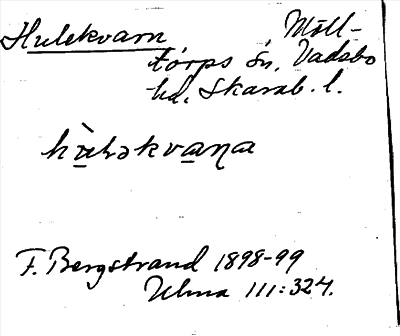 Hulekvarn Möll-
torps sn, Vadsbo
hd, Skarab. l.
hùləkvaṇa
F. Bergstrand 1898-99
Ulma 111:324.